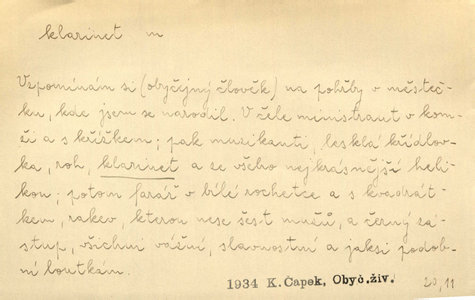 klarinet m
Vzpomínám si (obyčejný člověk) na pohřby v městeč-
ku, kde jsem se narodil. V čele ministrant v kom-
ži a s křížkem; pak muzikanti, lesklá křídlov-
ka, roh, klarinet a ze všeho nejkrásnější heli-
kon; potom farář v bílé rochetce a s kvadrát-
kem, rakev, kterou nese šest mužů, a černý zá-
stup, všichni vážní, slavnostní a jaksi podob-
ní loutkám.
1934 K. Čapek, Obyč.živ. 20, 11